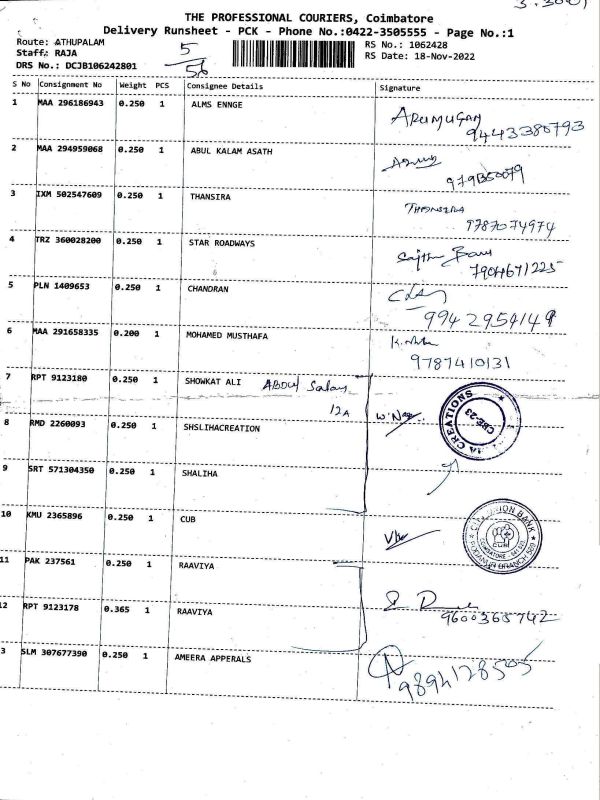 THE PROFESSIONAL COURIERS, Coimbatore
Delivery Runsheet - PCK - Phone No.:0422-3505555 - Page No.:1
Route: ATHUPALAM
Staff: RAJA
DRS No.: DCJB106242801
5
56
RS No.: 1062428
RS Date: 18-Nov-2022
S No Consignment No Weight PCS Consignee Details Signature
1 MAA 296186943 0.250 1 ALMS ENNGE ARUMUGAM
9443380793
2 MAA 294959068 0.250 1 ABUL KALAM ASATH
3 IXM 502547609 0.250 1 THANSIRA THANSIRA
9787074974
4 TRZ 360028200 0.250 1 STAR ROADWAYS
7904671225
5 PLN 1409653 0.250 1 CHANDRAN
9942954149
6 MAA 291658335 0.200 1 MOHAMED MUSTHAFA
9787410131
7 RPT 9123180 0.250 1 SHOWKAT ALI ABDUL Salam
12A
8 RMD 2260093 0.250 1 SHSLIHACREATION
CREATIONS
CBE-23
9 SRT 571304350 0.250 1 SHALIHA
10 KMU 2365896 0.250 1 CUB
CITY UNION BANK
COIMBATORE
11 PAK 237561 0.250 1 RAAVIYA
12 RPT 9123178 0.365 1 RAAVIYA
9600365742
3 SLM 307677390 0.250 1 AMEERA APPERALS
9894128505